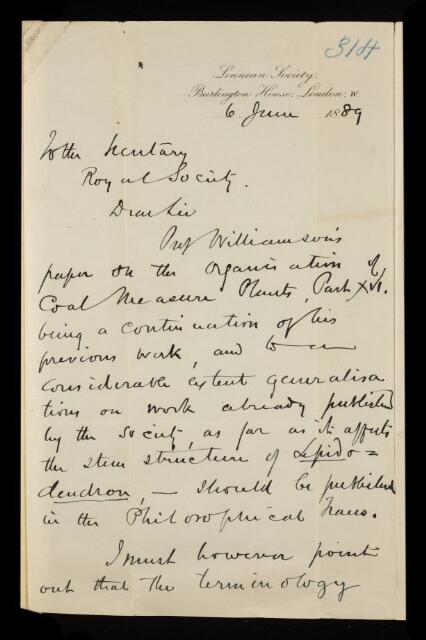 314
Linnean Society,
Burlington House, London, W.
6 June 1889
To the Secretary
Royal Society.
Dear Sir
Prof Williamson's
paper on the Organisation of
Coal Measure Plants, Part XVI.
being a continuation of his
previous work, and to a
considerable extent generalisa
tions on work already published
by the Society, as far as it affects
the stem structure of Lepido=
dendron, — should be published
in the Philosophical Trans.
I must however point
out that the terminology